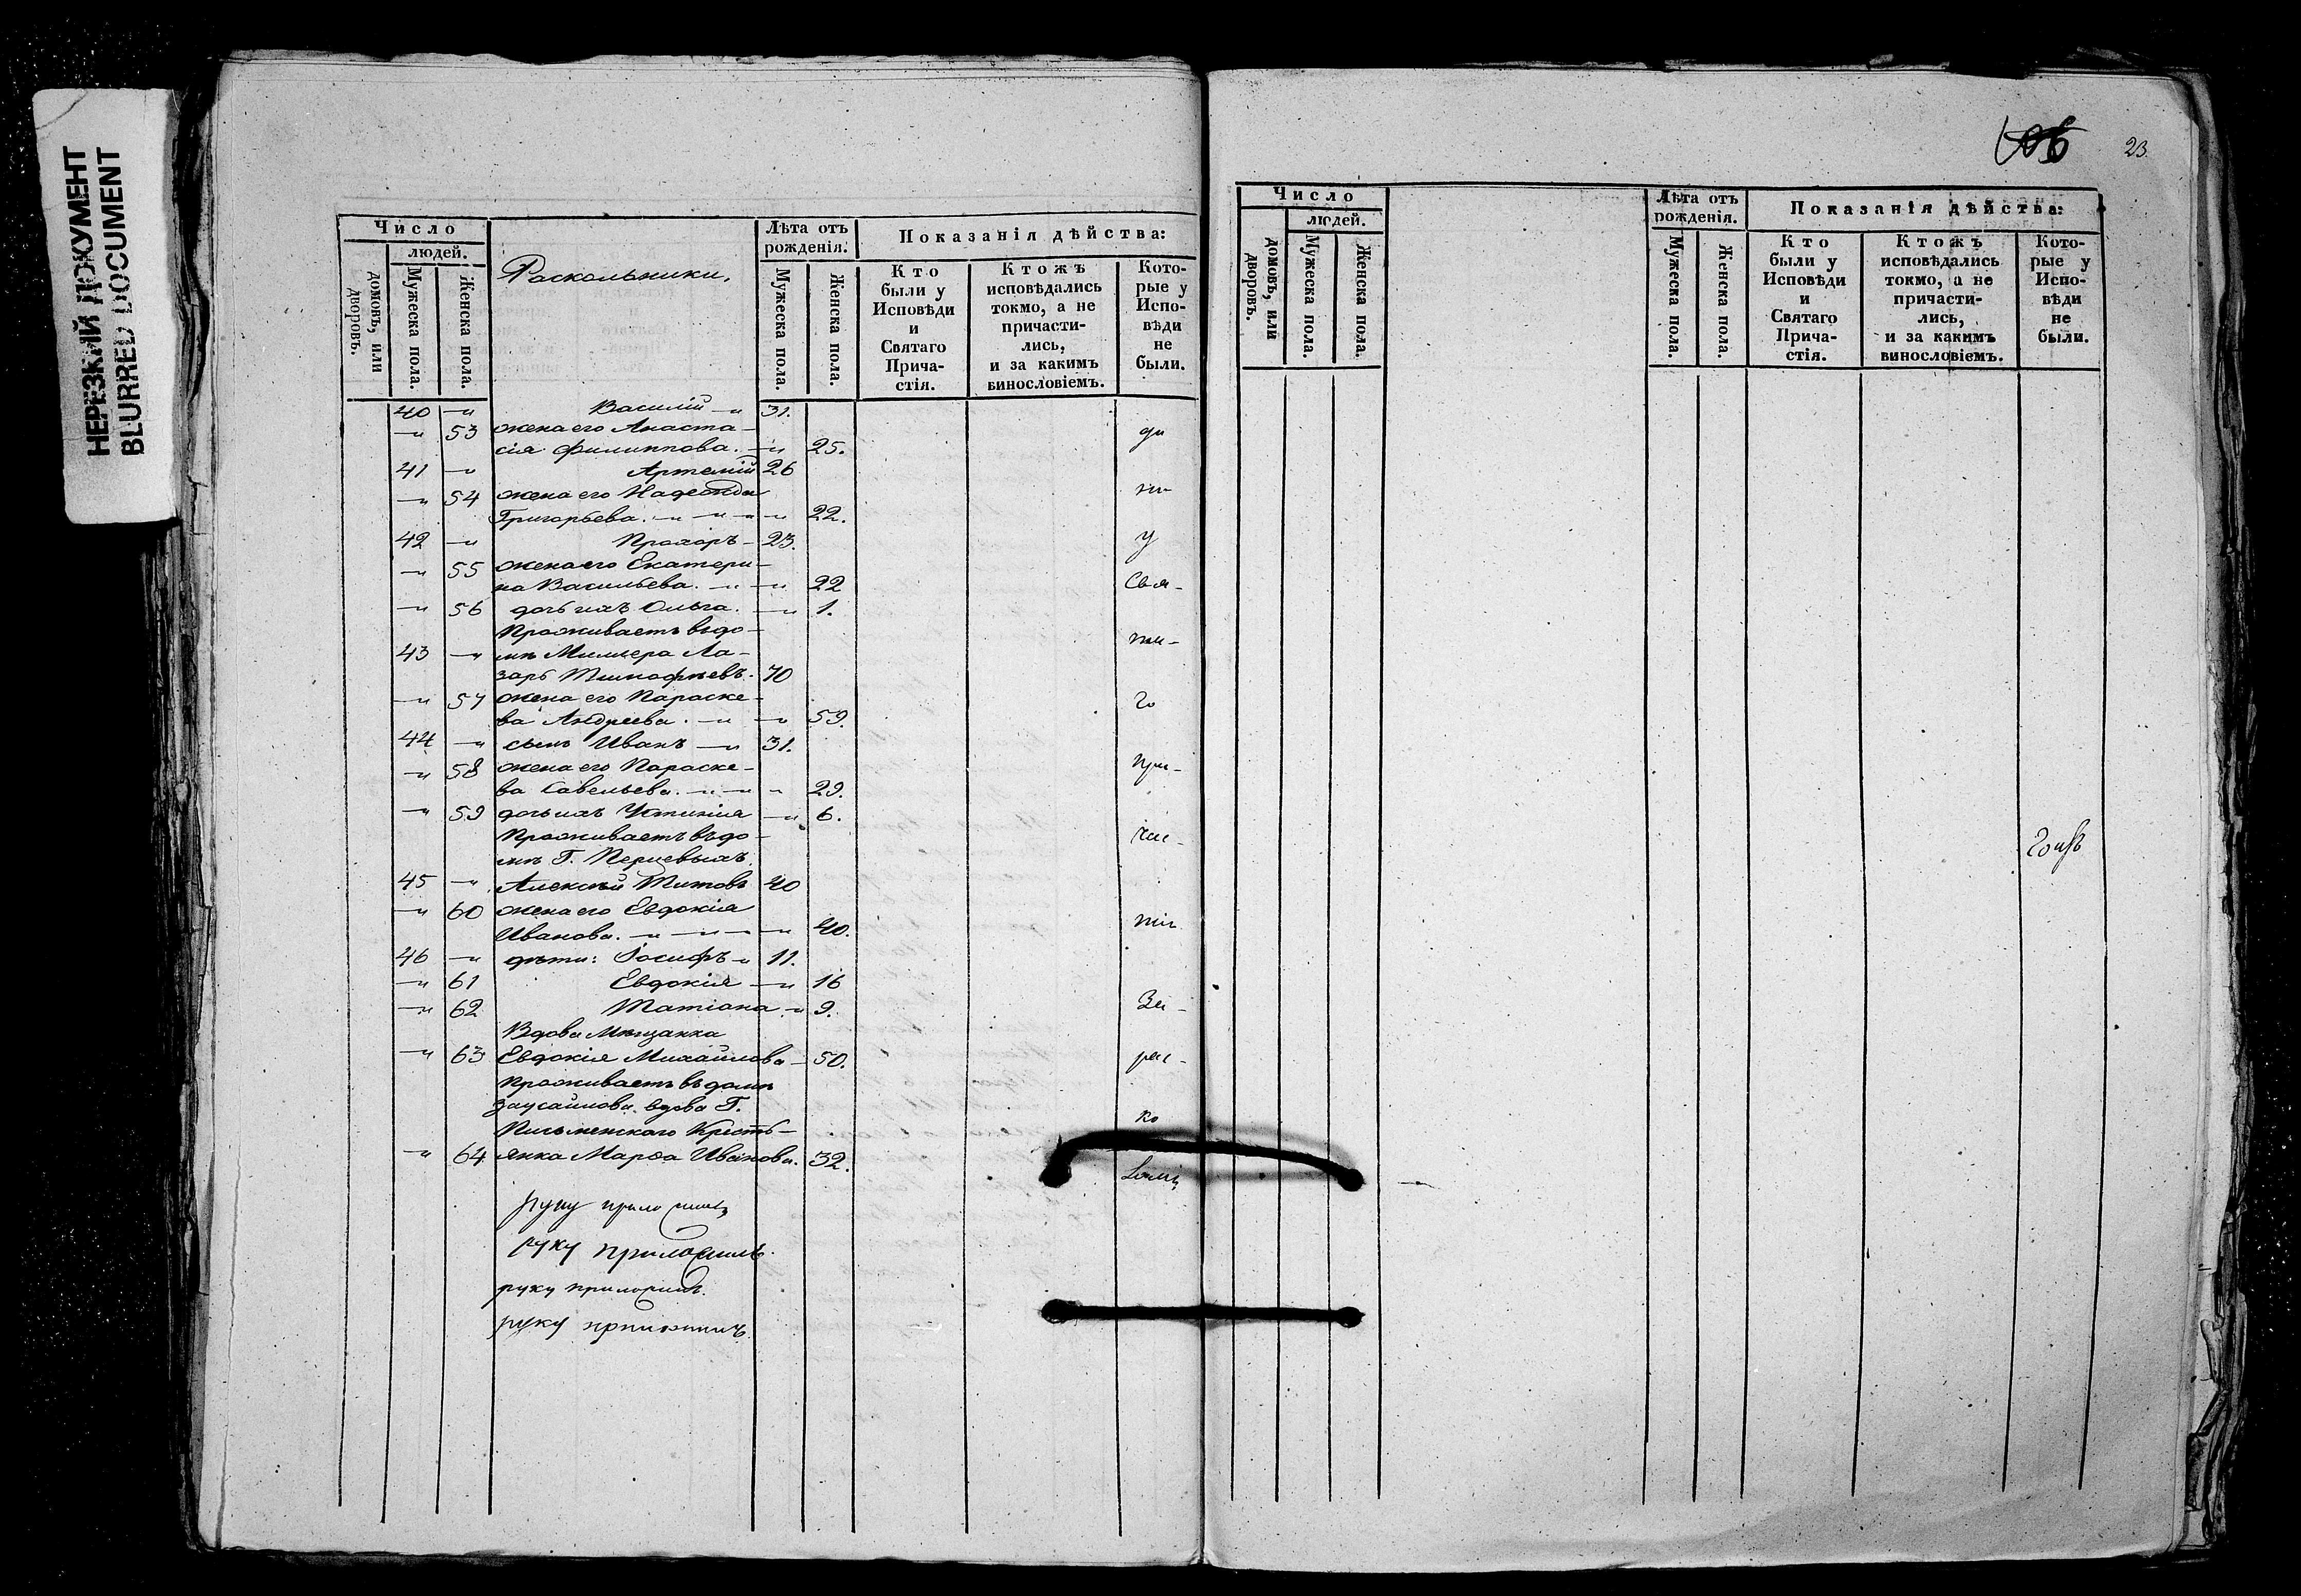 НЕРЕЗКИЙ ДОКУМЕНТ
BLURRED DOCUMENT
Число
людей.
домовъ, или дворовъ.
Мужеска пола.
Женска пола.
Раскольники.
Лѣта отъ рожденія.
Мужеска пола.
Женска пола.
Показанія дѣйства:
Кто были у Исповѣди и Святаго Прича- стія.
Ктожъ исповѣдались токмо, а не причасти- лись, и за какимъ винословіемъ.
Кото- рые у Испо- вѣди не были.
40 — " Василій — " 31.
— " 53 жена его Анаста-
сія Филиппова. — " 25.
41 — " Артемій 26
— " 54 жена его Надежда
Григорьева. — " — " — " 22.
42 — " Прохоръ — 23.
— " 55 жена его Екатери-
на Васильева. — " — " 22
— " 56 дочь ихъ Ольга. — " 1.
Проживаетъ въ до-
43 — " мѣ Миллера Ла-
зарь Тимофѣевъ. 70
— " 57 жена его Параске-
ва Андреева. — " — " 59.
44 — " сынъ Иванъ — " 31.
— " 58 жена его Параске-
ва Савельева. — " — " 29.
— " 59 дочь ихъ Устинія — " 6.
Проживаетъ въ до-
мѣ Г.
45 — " Алексѣй Титовъ 40
— " 60 жена его Евдокія
Иванова. — " — " — " 40.
46 — " дѣти: Іосифъ — " 11.
— " 61 Евдокія — " 16
— " 62 Татіана — " 9.
Вдова Мѣщанка
— " 63 Евдокія Михайлова — 50.
Проживаетъ въ домѣ
Заусайлова вдова Г.
Письменскаго Кресть-
— " 64 янка Марѳа Иванова. 32.
у
Свя-
та-
го
При-
час-
тія
За
рас-
ко
ломъ
руку приложилъ
руку приложилъ.
руку приложилъ.
руку приложилъ
106
23.
Число
людей.
домовъ, или дворовъ.
Мужеска пола.
Женска пола.
Лѣта отъ рожденія.
Мужеска пола.
Женска пола.
Показанія дѣйства:
Кто были у Исповѣди и Святаго Прича- стія.
Ктожъ исповѣдались токмо, а не причасти- лись, и за какимъ винословіемъ.
Кото- рые у Испо- вѣди не были.